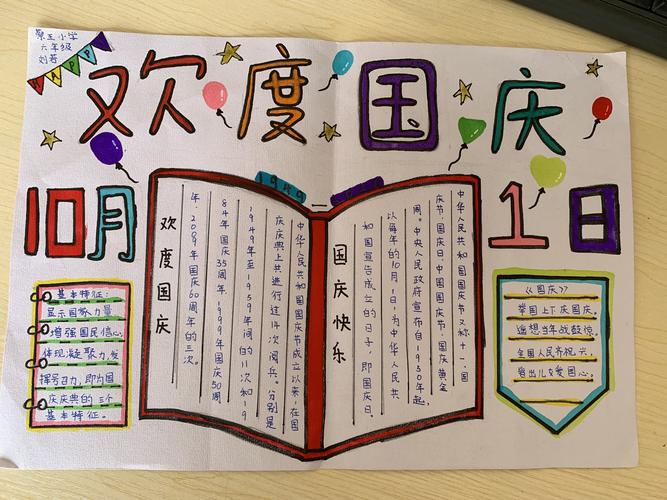 小学
六年级
HAPPY
欢度国庆
10月
1日
1949
国庆快乐
中华人民共和国国庆节又称十一、国
庆节、国庆日、中国国庆节、国庆黄金
周。中央人民政府宣布自1950年起,
以每年的10月1日为中华人民共
和国宣告成立的日子,即国庆日。
欢度国庆
中华人民共和国国庆节成立以来,在国
庆庆典上共进行过14次阅兵。分别是
1949年至1959年间的11次和19
84年国庆35周年、1999年国庆50周
年、2009年国庆60周年的三次。
基本特征:
显示国家力量
增强国民信心,
体现凝聚力,发
挥号召力,即为国
庆庆典的三个
基本特征。
《国庆》
举国上下庆国庆。
遥想当年战鼓惊。
全国人民齐祝
出儿女爱国心。